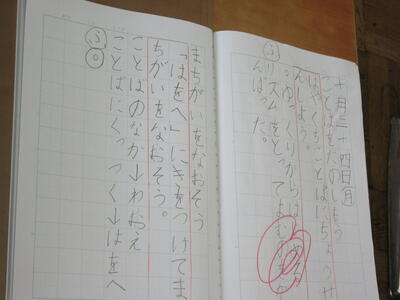 十月二十四日(月)
ことばをたのしもう
はやくちことばにちょうせ
んしよう。
・ゆっくりからは
ふリズムをとってよむ
んばった。
まちがいをなおそう
「はをへ」にきをつけてま
ちがいをなおそう。
ことばのなか→わおえ
ことばにくっつく→はをへ
ふ○